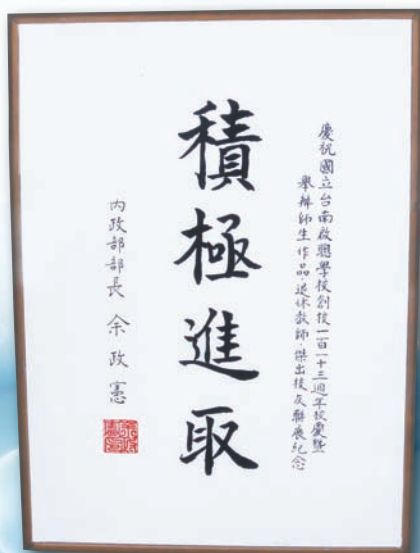 慶祝國立台南啟聰學校創校一百一十三週年校慶暨
舉辦師生作品‧退休教師‧傑出校友聯展紀念
積極進取
內政部部長 余政憲